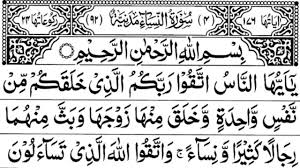 اٰیَاتُهَا ۱۷۶ (۴) سُوْرَةُ النِّسَآءِ مَدَنِيَّةٌ (۹۲) رُكُوْعَاتُهَا ۲۴
بِسْمِ اللّٰهِ الرَّحْمٰنِ الرَّحِيْمِ
يٰۤاَيُّهَا النَّاسُ اتَّقُوْا رَبَّكُمُ الَّذِيْ خَلَقَكُمْ مِّنْ
نَّفْسٍ وَّاحِدَةٍ وَّخَلَقَ مِنْهَا زَوْجَهَا وَبَثَّ مِنْهُمَا
رِجَالًا كَثِيْرًا وَّنِسَآءً ۚ وَاتَّقُوا اللّٰهَ الَّذِيْ تَسَآءَلُوْنَ